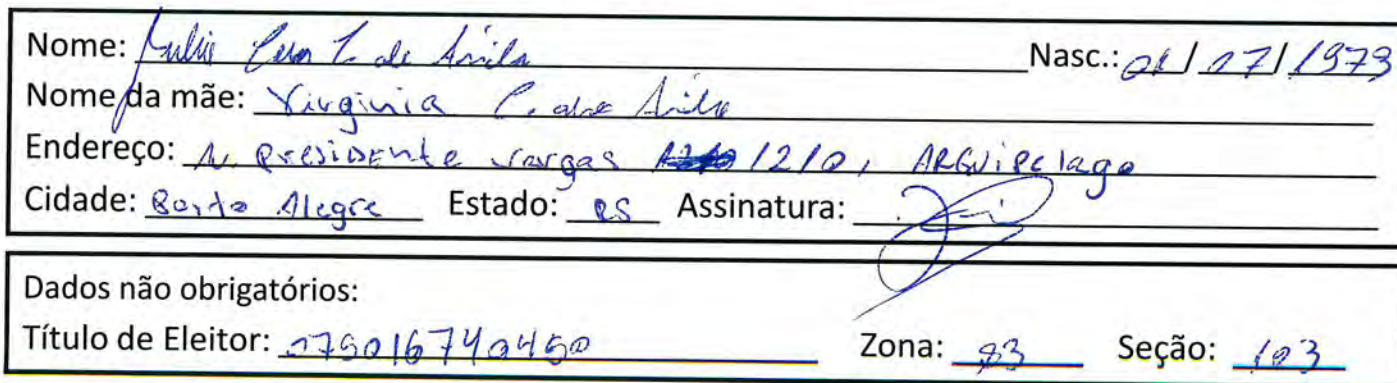 Nome: Julio Cesar L. de Avila Nasc.: 01/07/1979
Nome da mãe: Virginia C. de Avila
Endereço: presidente vargas 1210, ARQUIPELAGO
Cidade: Porto Alegre Estado: RS Assinatura:
Dados não obrigatórios:
Título de Eleitor: 075016740450 Zona: 83 Seção: 103